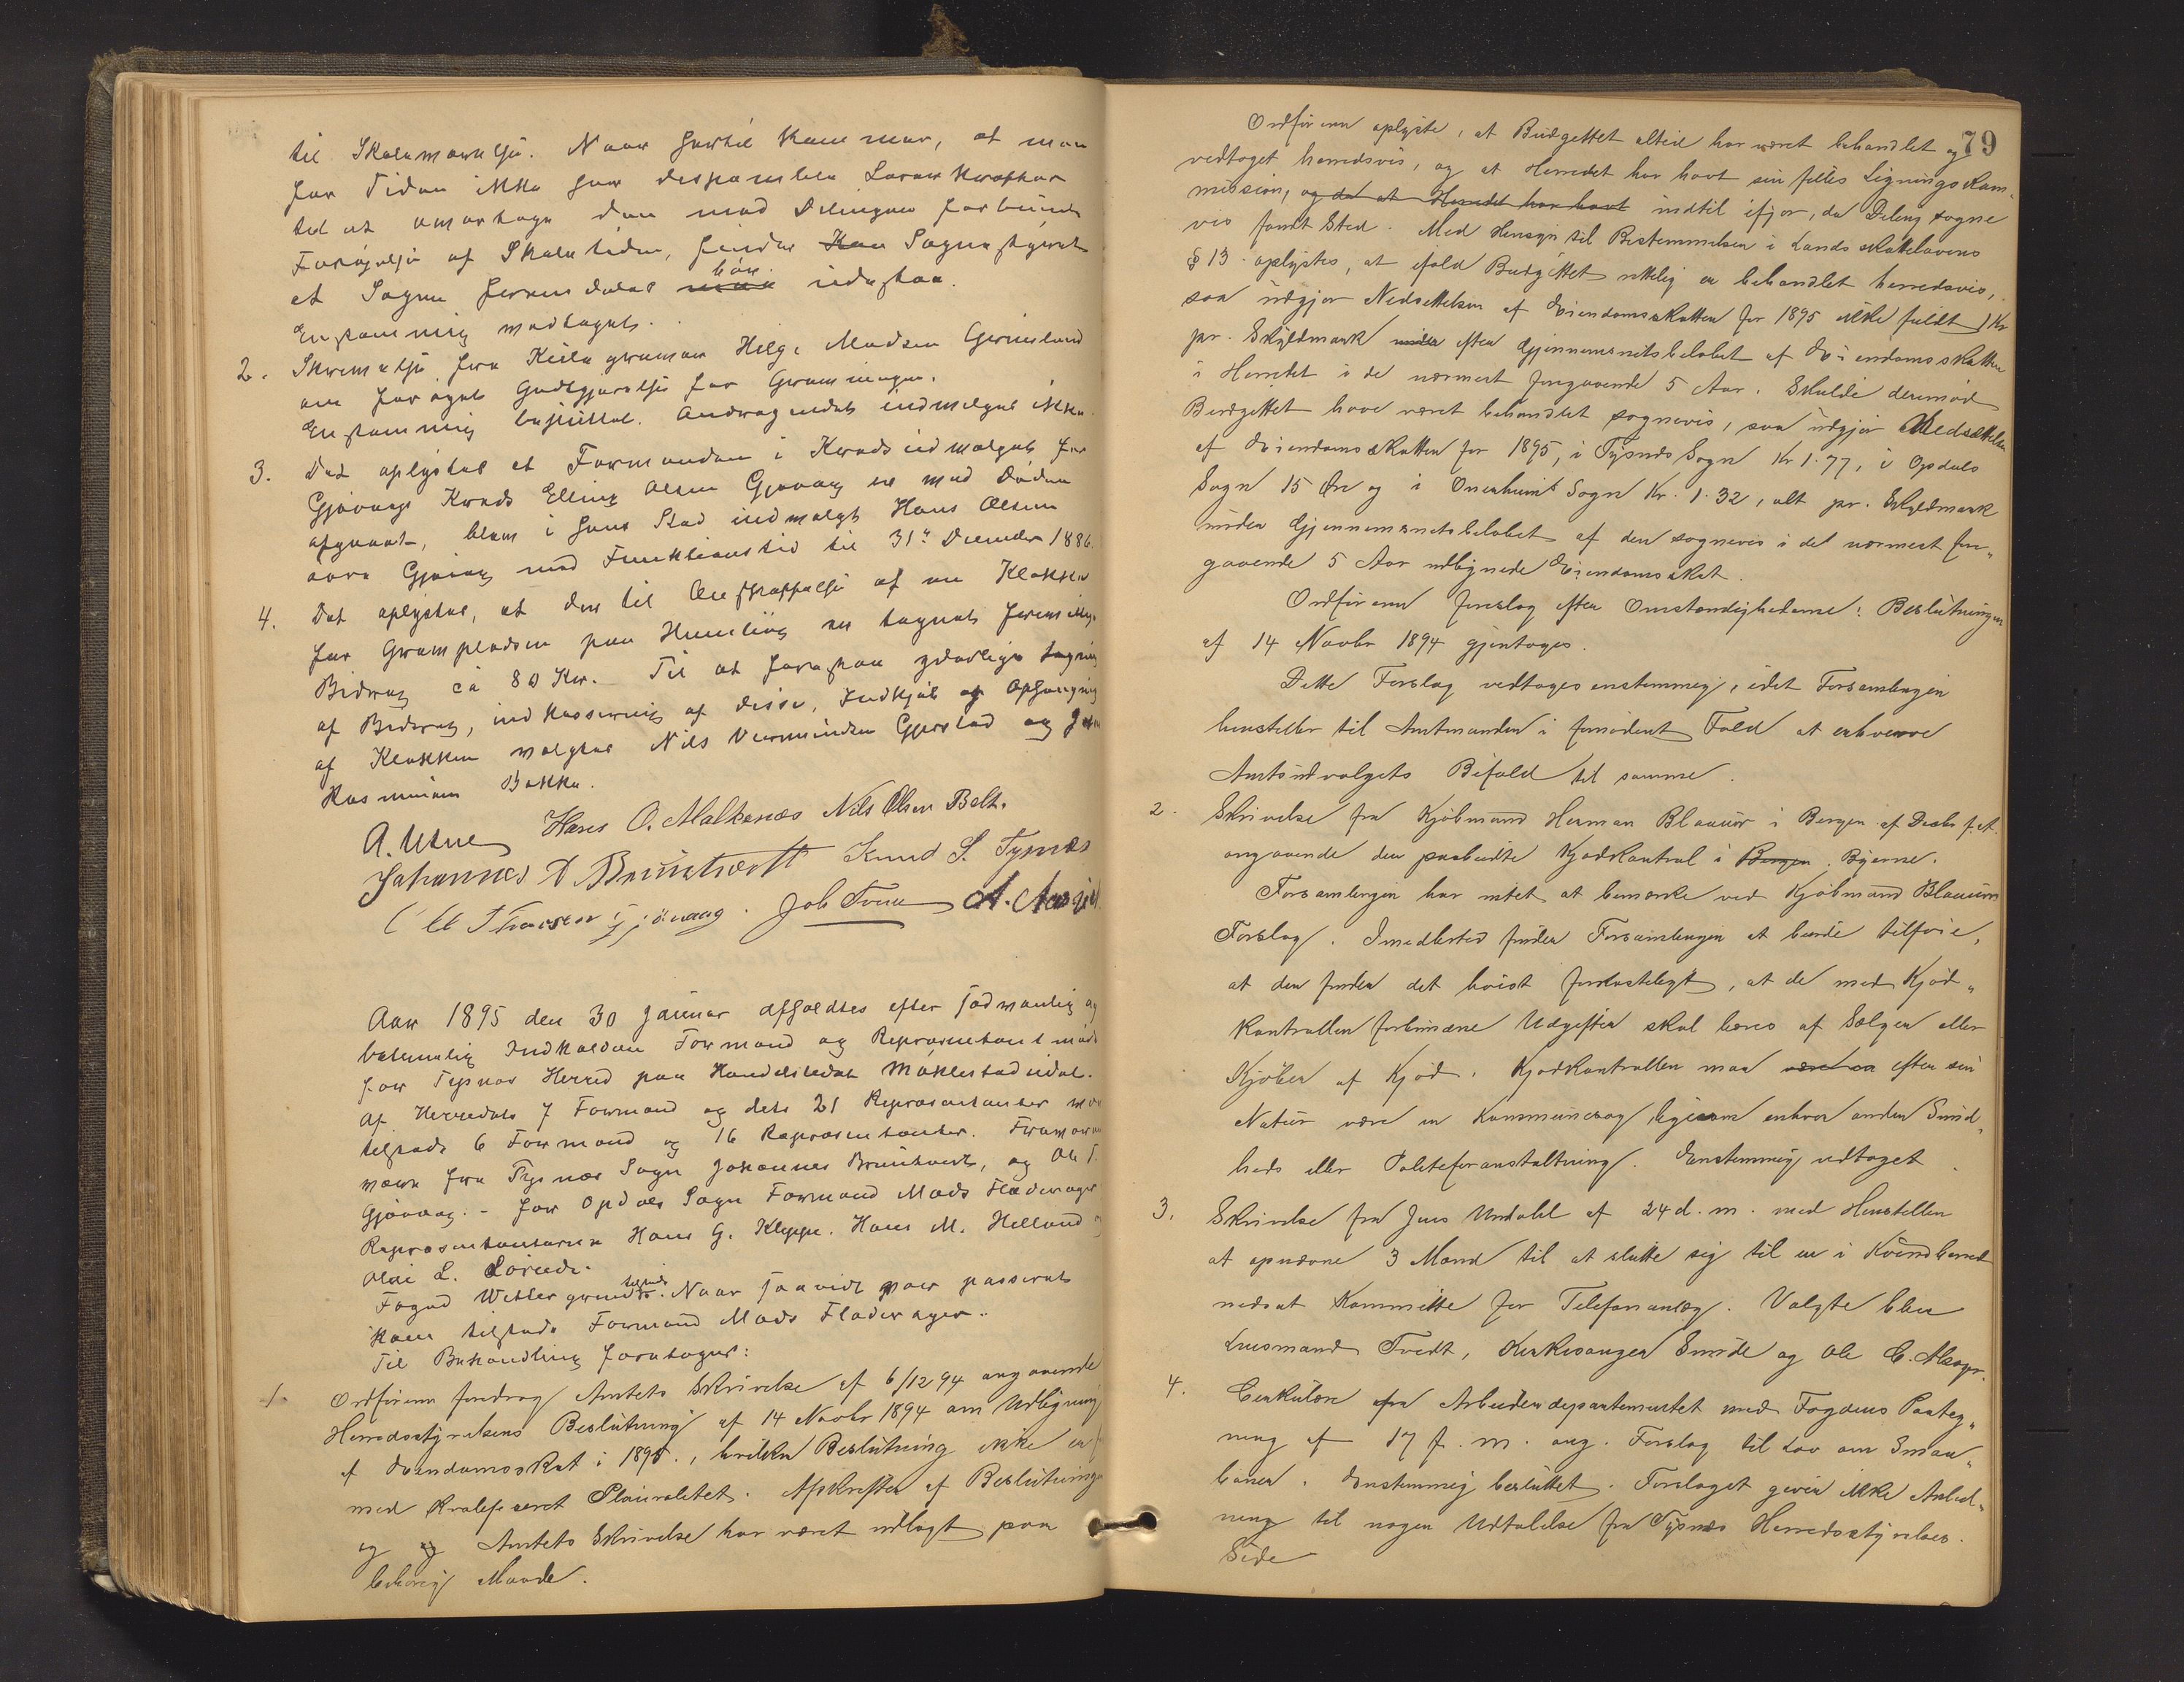 til Skolemøvelse. Naar hertil kommer, at man
for Tiden ikke har disponible Lærerkræfter
til at overtage den med Delingen forbundne
Forøgelse af Skoletiden, finder Sognestyret
at Sagen fremdeles bør udestaa.
Enstemmig vedtaget.
2. Skrivelse fra Kirkegraver Hilge Madsen Grimsland
om forøget Godtgjørelse for Gravningen.
Enstemmig besluttet. Andragendet indvilges ikke.
3. Det oplystes at Formanden i Kreds indvalgte for
Gjøvaags Kreds Elling Olsen Gjøvaag er ved Døden
afgaaet, blev i hans Sted indvalgt Hans Olsen
øvre Gjøvaag med Funktionstid til 31te December 1886.
4. Det oplystes, at der til Anskaffelse af en Klokke
for Gravpladsen paa Humlevig er tegnet frivillige
Bidrag ca 80 Kr. Til at forestaa yderlige tegning
af Bidrag, indkassering af disse, Indkjøb og Ophængning
af Klokken valgtes Nils Vermundsen Gjerstad og
Rasmussen Bakke.
A. Utne Hans O. Malkenæs Nils Olsen Belt.
Johannes A Brüntveit Knud S. Tysnæs
Ole Thorsen Gjøvaag. Joh Tveit A.
Aar 1895 den 30 Januar afholdtes efter sædvanlig og
betimelig Indkaldan Formand og Repræsentantmøde
for Tysnes Herred paa Handelsstedet Møklestadeidet.
Af Herredets 7 Formænd og dets 21 Repræsentanter var
tilstede 6 Formænd og 16 Repræsentanter. Fraværende
var fra Tysnes Sogn Johannes Bruntveit, og Ole T.
Gjøvaag. - for Opdals Sogn Formand Mads Fladerager
Repræsentanterne Hans G. Kleppe. Hans M. Helland
Olai L. Lovede.
Foged Wetlegreen tilstede. Naar saavidt var passeret
kom tilstede Formand Mads Fladerager.
Til Behandling foretoges:
1. Ordføreren foredrog Amtets Skrivelse af 6/12 94 angaaende
Herredsstyrelsens Beslutning af 14 Novbr 1894 om Udligning
af Eiendomsskat i 1895., hvilken Beslutning ikke er
med kvalificeret Pluralitet. Afskrifter af Beslutningen
og og Amtets Skrivelse har været udlagt paa
behørig Maade.
79
Ordføreren oplyste, at Budgettet altid har været behandlet og
vedtaget herredsvis, og at Herredet har havt sin fælles Ligningskom-
mission, og det at Herredet har havt indtil ifjor, da Deling sogne-
vis fandt Sted. Med Hensyn til Bestemmelsen i Landsskattelovens
§ 13 oplystes, at ifald Budgettet rettelig er behandlet herredsvis,
saa udgjør Nedsættelsen af Eiendomsskatten for 1895 ikke fuldt 1 Kr
pr. Skyldmark under efter Gjennemsnitsbeløbet af Eiendomsskatten
i Herredet i de nærmest foregaaende 5 Aar. Skulde derimod
Budgettet have været behandlet sognevis, saa udgjør Nedsættelsen
af Eiendomsskatten for 1895, i Tysnes Sogn Kr 1.77, i Opdals
Sogn 15 Øre og i Onerheims Sogn Kr. 1.32, alt pr. Skyldmark
under Gjennemsnitsbeløbet af den sognevis i det nærmest fore-
gaaende 5 Aar udlignede Eiendomsskat.
Ordføreren foreslog efter Omstændighederne: Beslutningen
af 14 Novbr 1894 gjentages.
Dette Forslag vedtages enstemmig, idet Forsamlingen
henstiller til Amtmanden i fornødent Fald at erhverve
Amtsudvalgets Bifald til samme.
2. Skrivelse fra Kjøbmand Herman Blaauw i Bergen af Decbr f. A.
angaaende den paabudte Kjødkontrol i Bergen. Byerne.
Forsamlingen har intet at bemærke ved Kjøbmand Blaauws
Forslag. Imidlertid finder Forsamlingen at burde tilføie,
at den finder det høist forkasteligt, at de med Kjød-
kontrollen forbundne Udgifter skal bæres af Sælger eller
Kjøber af Kjød. Kjødkontrollen maa efter sin
Natur være en Kommunesag ligesom enhver anden Sund-
heds eller Politiforanstaltning. Enstemmig vedtaget.
3. Skrivelse fra Jens Undahl af 24 d. m. med Henstillen
at opnævne 3 Mænd til at slutte sig til en i Kvindherred
nedsat Kommitte for Telefonanlæg. Valgte blev
Lensmand Tvedt, Kirkesanger Smørde og Ole C. Alsager.
4. Cirkulære fra Arbeiderdepartementet med Fogdens Paateg-
ning af 17 f. m. ang. Forslag til Lov om Smaa-
baner. Enstemmig besluttet. Forslaget giver ikke Anled-
ning til nogen Udtalelse fra Tysnes Herredsstyrelses
Side